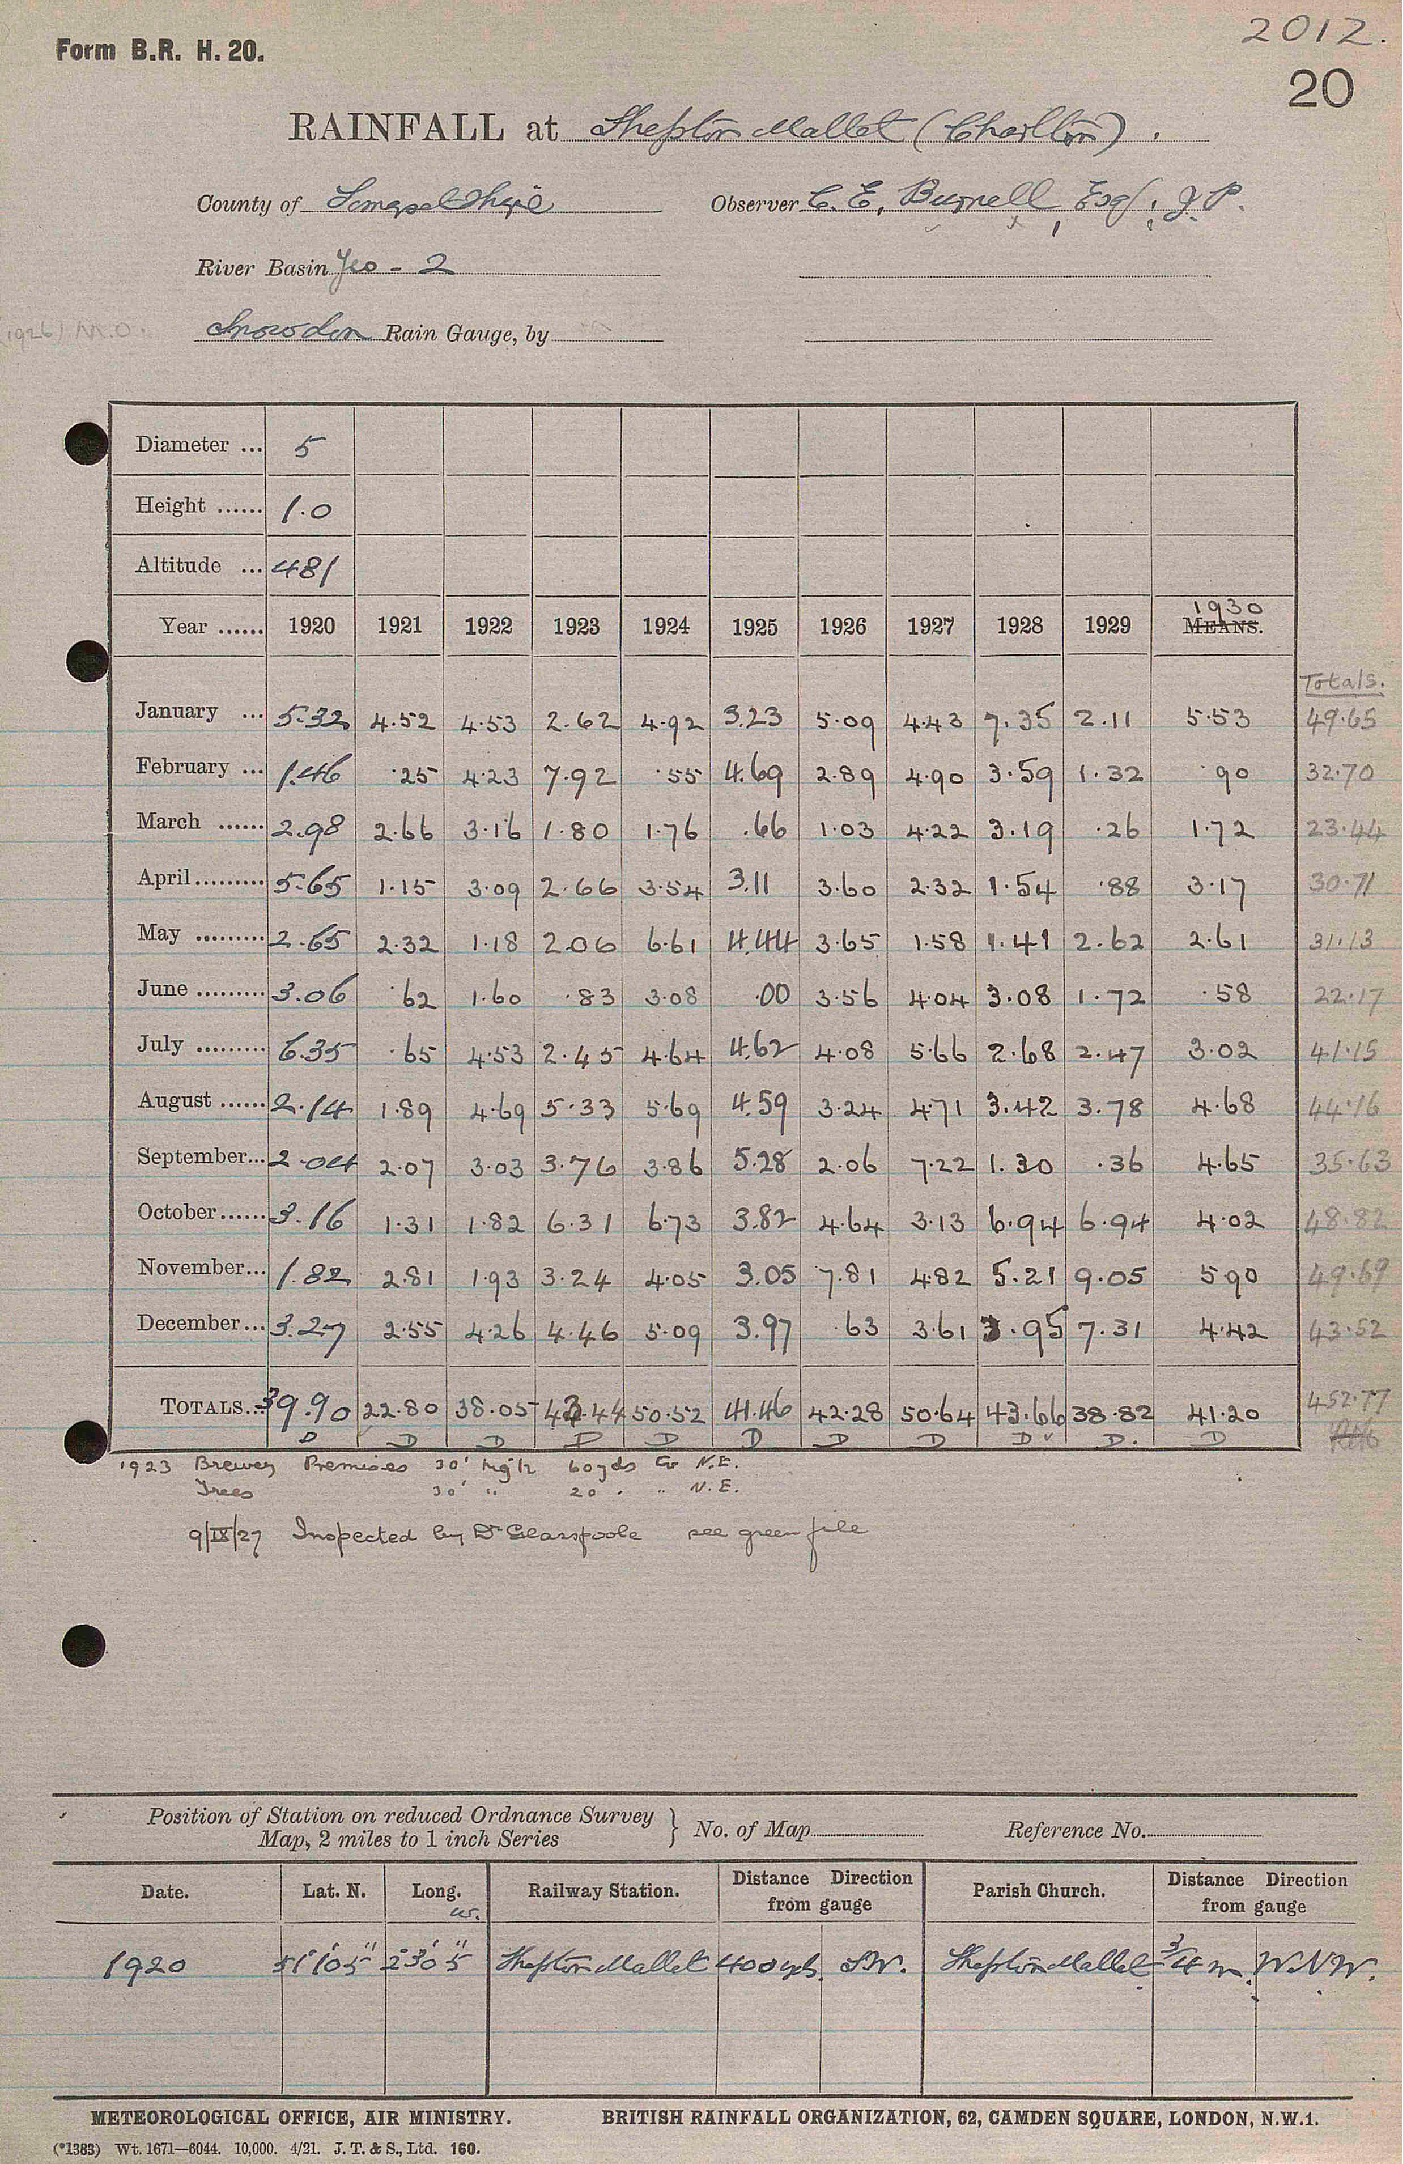 2012.
Form B.R. H. 20.
20
RAINFALL at Shepton Mallet (Charlton).
County of Somersetshire Observer C. E. Burnell Esq, J.P.
River Basin Yeo - 2
(1926) M.O. Snowdon Rain Gauge, by
Diameter ... 5
Height ...... 1.0
Altitude ... 481
Year ...... 1920 1921 1922 1923 1924 1925 1926 1927 1928 1929 1930 MEANS.
Totals.
January ... 5.32 4.52 4.53 2.62 4.92 3.23 5.09 4.43 7.35 2.11 5.53 49.65
February ... 1.46 .25 4.23 7.92 .55 4.69 2.89 4.90 3.59 1.32 .90 32.70
March ...... 2.98 2.66 3.16 1.80 1.76 .66 1.03 4.22 3.19 .26 1.72 23.44
April......... 5.65 1.15 3.09 2.66 3.54 3.11 3.60 2.32 1.54 .88 3.17 30.71
May ......... 2.65 2.32 1.18 2.06 6.61 4.44 3.65 1.58 1.41 2.62 2.61 31.13
June ......... 3.06 .62 1.60 .83 3.08 .00 3.56 4.04 3.08 1.72 .58 22.17
July ......... 6.35 .65 4.53 2.45 4.64 4.62 4.08 5.66 2.68 2.47 3.02 41.15
August ...... 2.14 1.89 4.69 5.33 5.69 4.59 3.24 4.71 3.42 3.78 4.68 44.16
September... 2.04 2.07 3.03 3.76 3.86 5.28 2.06 7.22 1.30 .36 4.65 35.63
October...... 3.16 1.31 1.82 6.31 6.73 3.82 4.64 3.13 6.94 6.94 4.02 48.82
November... 1.82 2.81 1.93 3.24 4.05 3.05 7.81 4.82 5.21 9.05 5.90 49.69
December... 3.27 2.55 4.26 4.46 5.09 3.97 .63 3.61 3.95 7.31 4.42 43.52
TOTALS... 39.90 22.80 38.05 43.44 50.52 41.46 42.28 50.64 43.66 38.82 41.20 452.77
D D D D D D D D D D. D
1923 Brewery Premises 30' high 60yds to N.E.
Trees 30' " 20 . " N.E.
9/IX/27 Inspected by Dr Glasspoole see green file
Position of Station on reduced Ordnance Survey
Map, 2 miles to 1 inch Series } No. of Map Reference No.
Date. Lat. N. Long. W. Railway Station. Distance Direction from gauge Parish Church. Distance Direction from gauge
1920 51° 10' 5" 2° 30' 5" Shepton Mallet 400 yds. S.W. Shepton Mallet 3/4 m. W.N.W.
METEOROLOGICAL OFFICE, AIR MINISTRY. BRITISH RAINFALL ORGANIZATION, 62, CAMDEN SQUARE, LONDON, N.W.1.
(*1383) Wt. 1671—6044. 10,000. 4/21. J. T. & S., Ltd. 160.